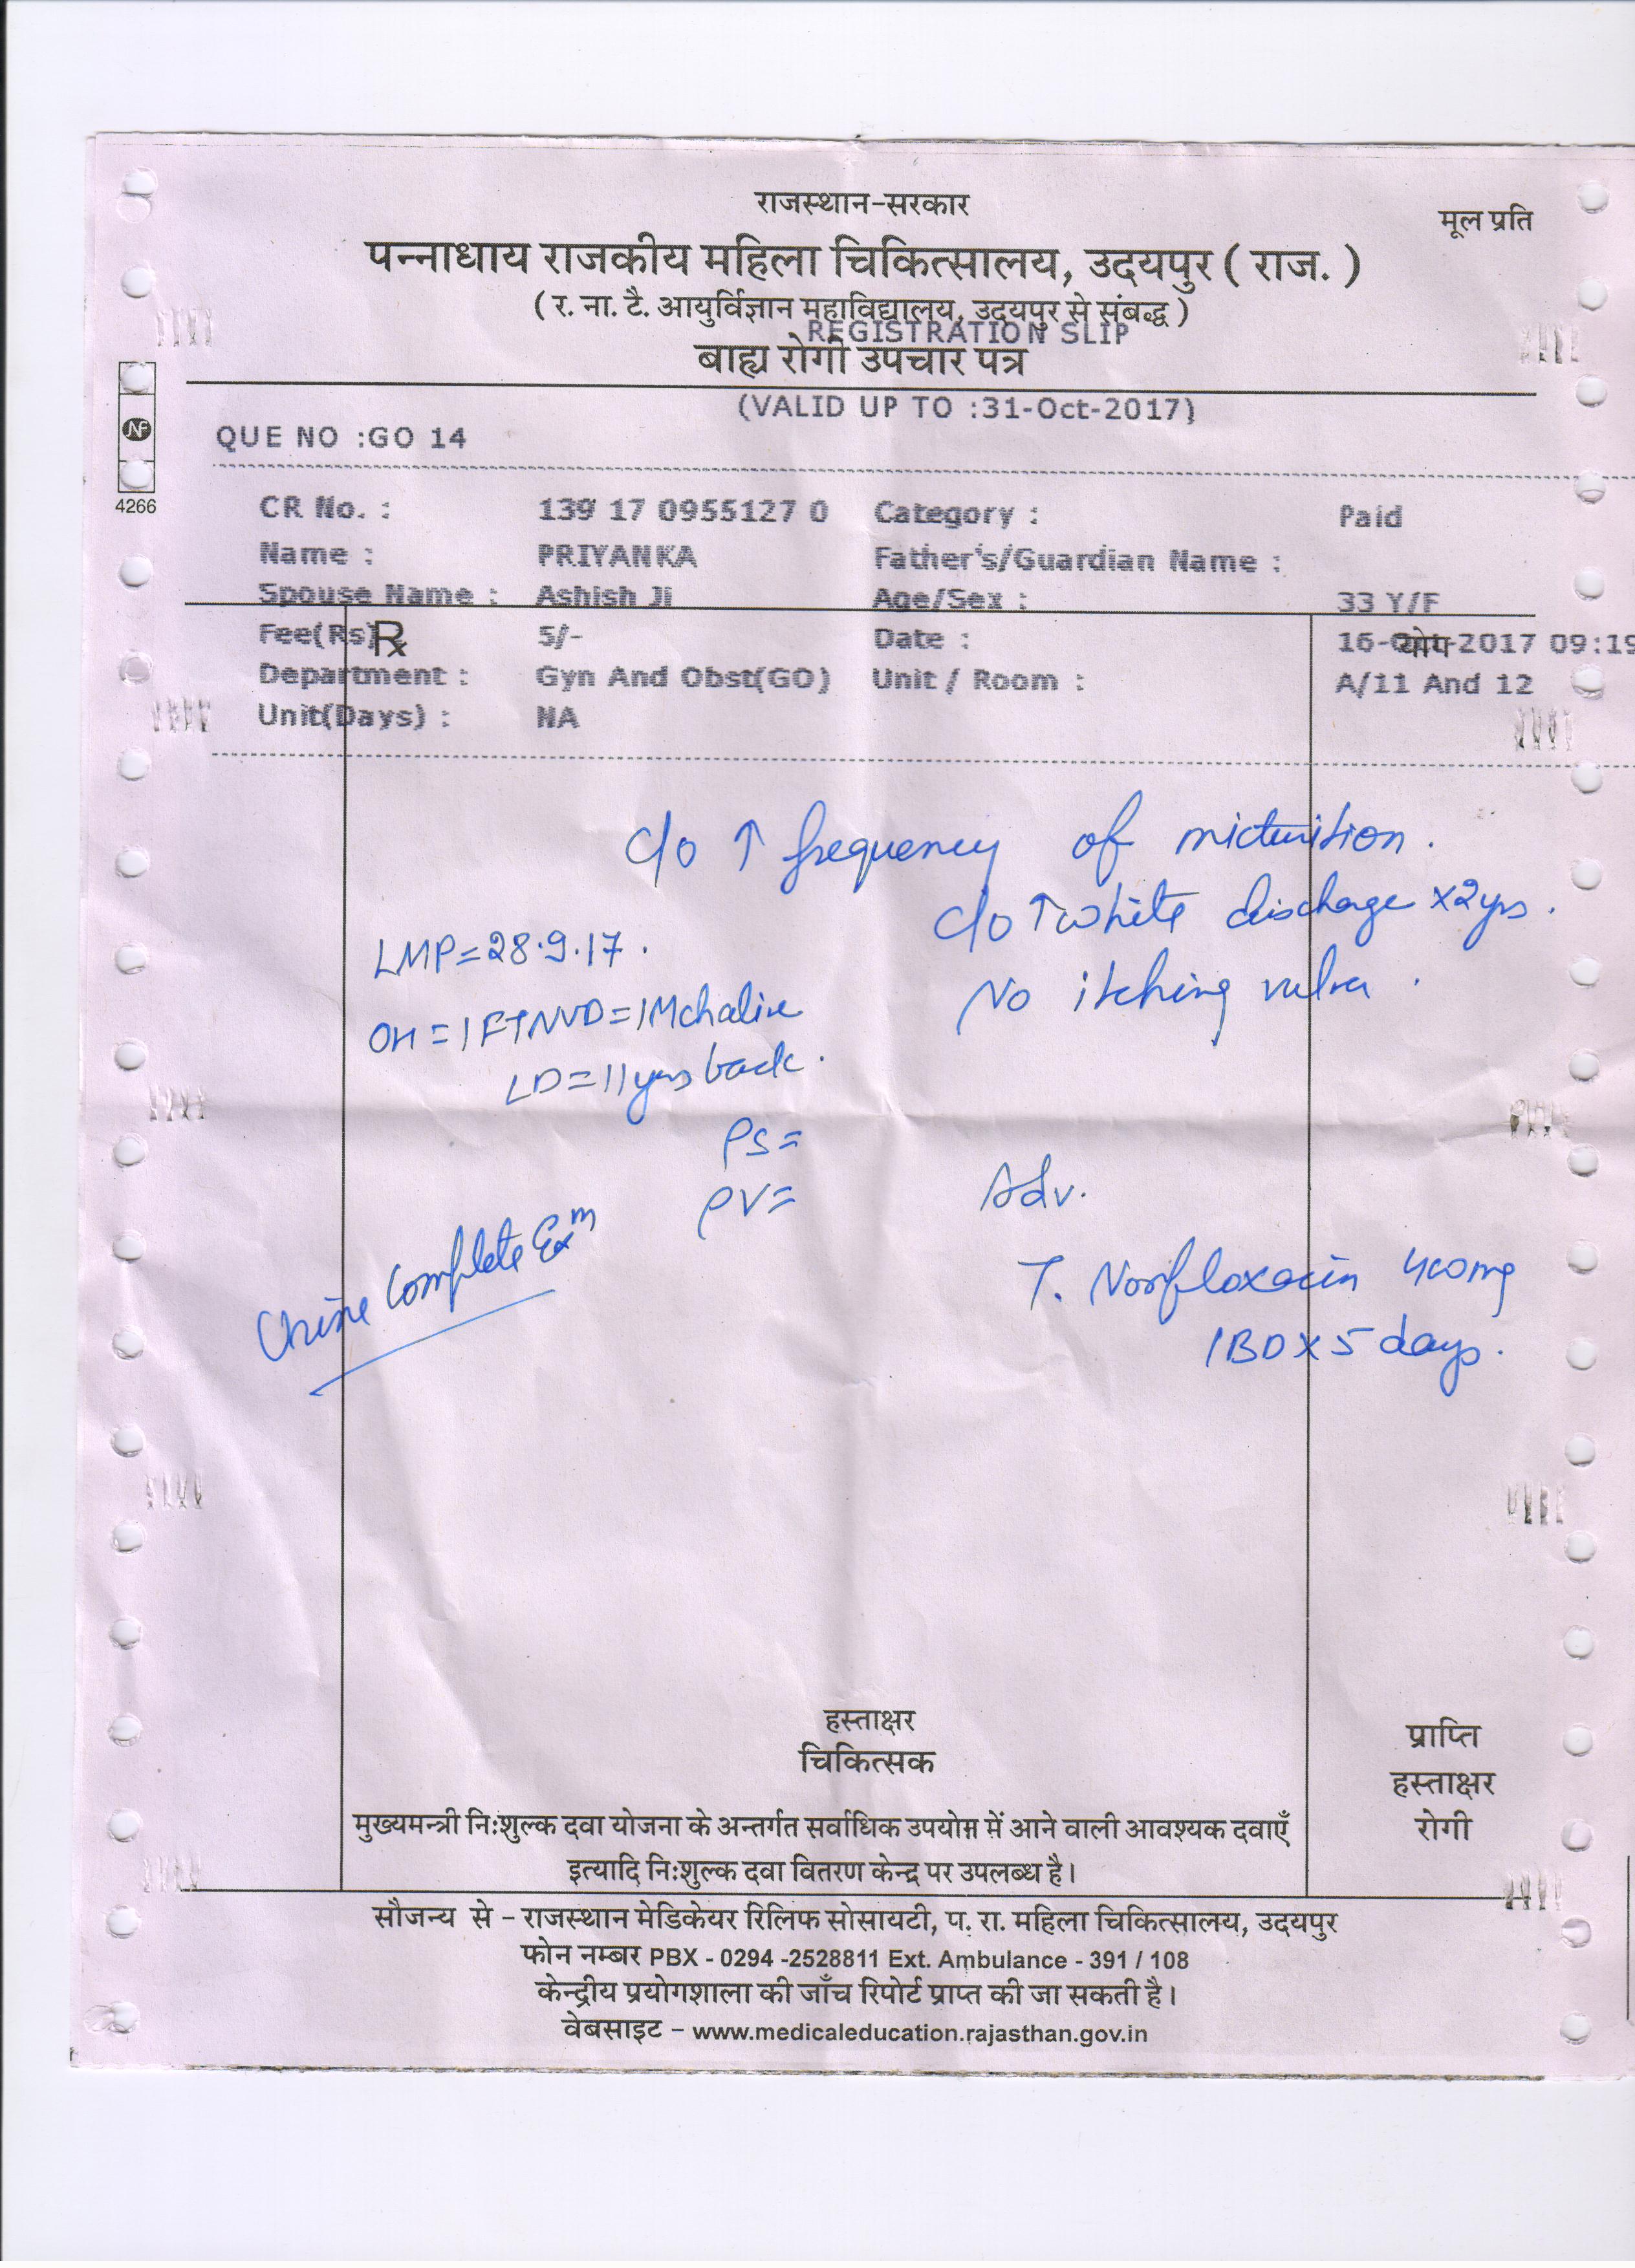 राजस्थान-सरकार
मूल प्रति
पन्नाधाय राजकीय महिला चिकित्सालय, उदयपुर ( राज. )
( र. ना. टै. आयुर्विज्ञान महाविद्यालय, उदयपुर से संबद्ध )
REGISTRATION SLIP
बाह्य रोगी उपचार पत्र
(VALID UP TO :31-Oct-2017)
QUE NO :GO 14
4266
CR No. : 139 17 0955127 0 Category : Paid
Name : PRIYANKA Father's/Guardian Name :
Spouse Name : Ashish Ji Age/Sex : 33 Y/F
Fee(Rs) R 5/- Date : 16-Oct-2017 09:19
योग
Department : Gyn And Obst(GO) Unit / Room : A/11 And 12
Unit(Days) : NA
c/o ↑ frequency of micturition.
c/o ↑ white discharge x2yrs.
LMP=28.9.17.
No itching vulva.
OH=1FTNVD=1Mchalive
LD=11yrs back.
PS=
PV=
Adv.
Urine Complete Exm
T. Norfloxacin 400mg
1BDx5 days.
हस्ताक्षर
चिकित्सक
प्राप्ति
हस्ताक्षर
रोगी
मुख्यमन्त्री निःशुल्क दवा योजना के अन्तर्गत सर्वाधिक उपयोग में आने वाली आवश्यक दवाएँ
इत्यादि निःशुल्क दवा वितरण केन्द्र पर उपलब्ध है।
सौजन्य से - राजस्थान मेडिकेयर रिलिफ सोसायटी, प. रा. महिला चिकित्सालय, उदयपुर
फोन नम्बर PBX - 0294 -2528811 Ext. Ambulance - 391 / 108
केन्द्रीय प्रयोगशाला की जाँच रिपोर्ट प्राप्त की जा सकती है।
वेबसाइट - www.medicaleducation.rajasthan.gov.in